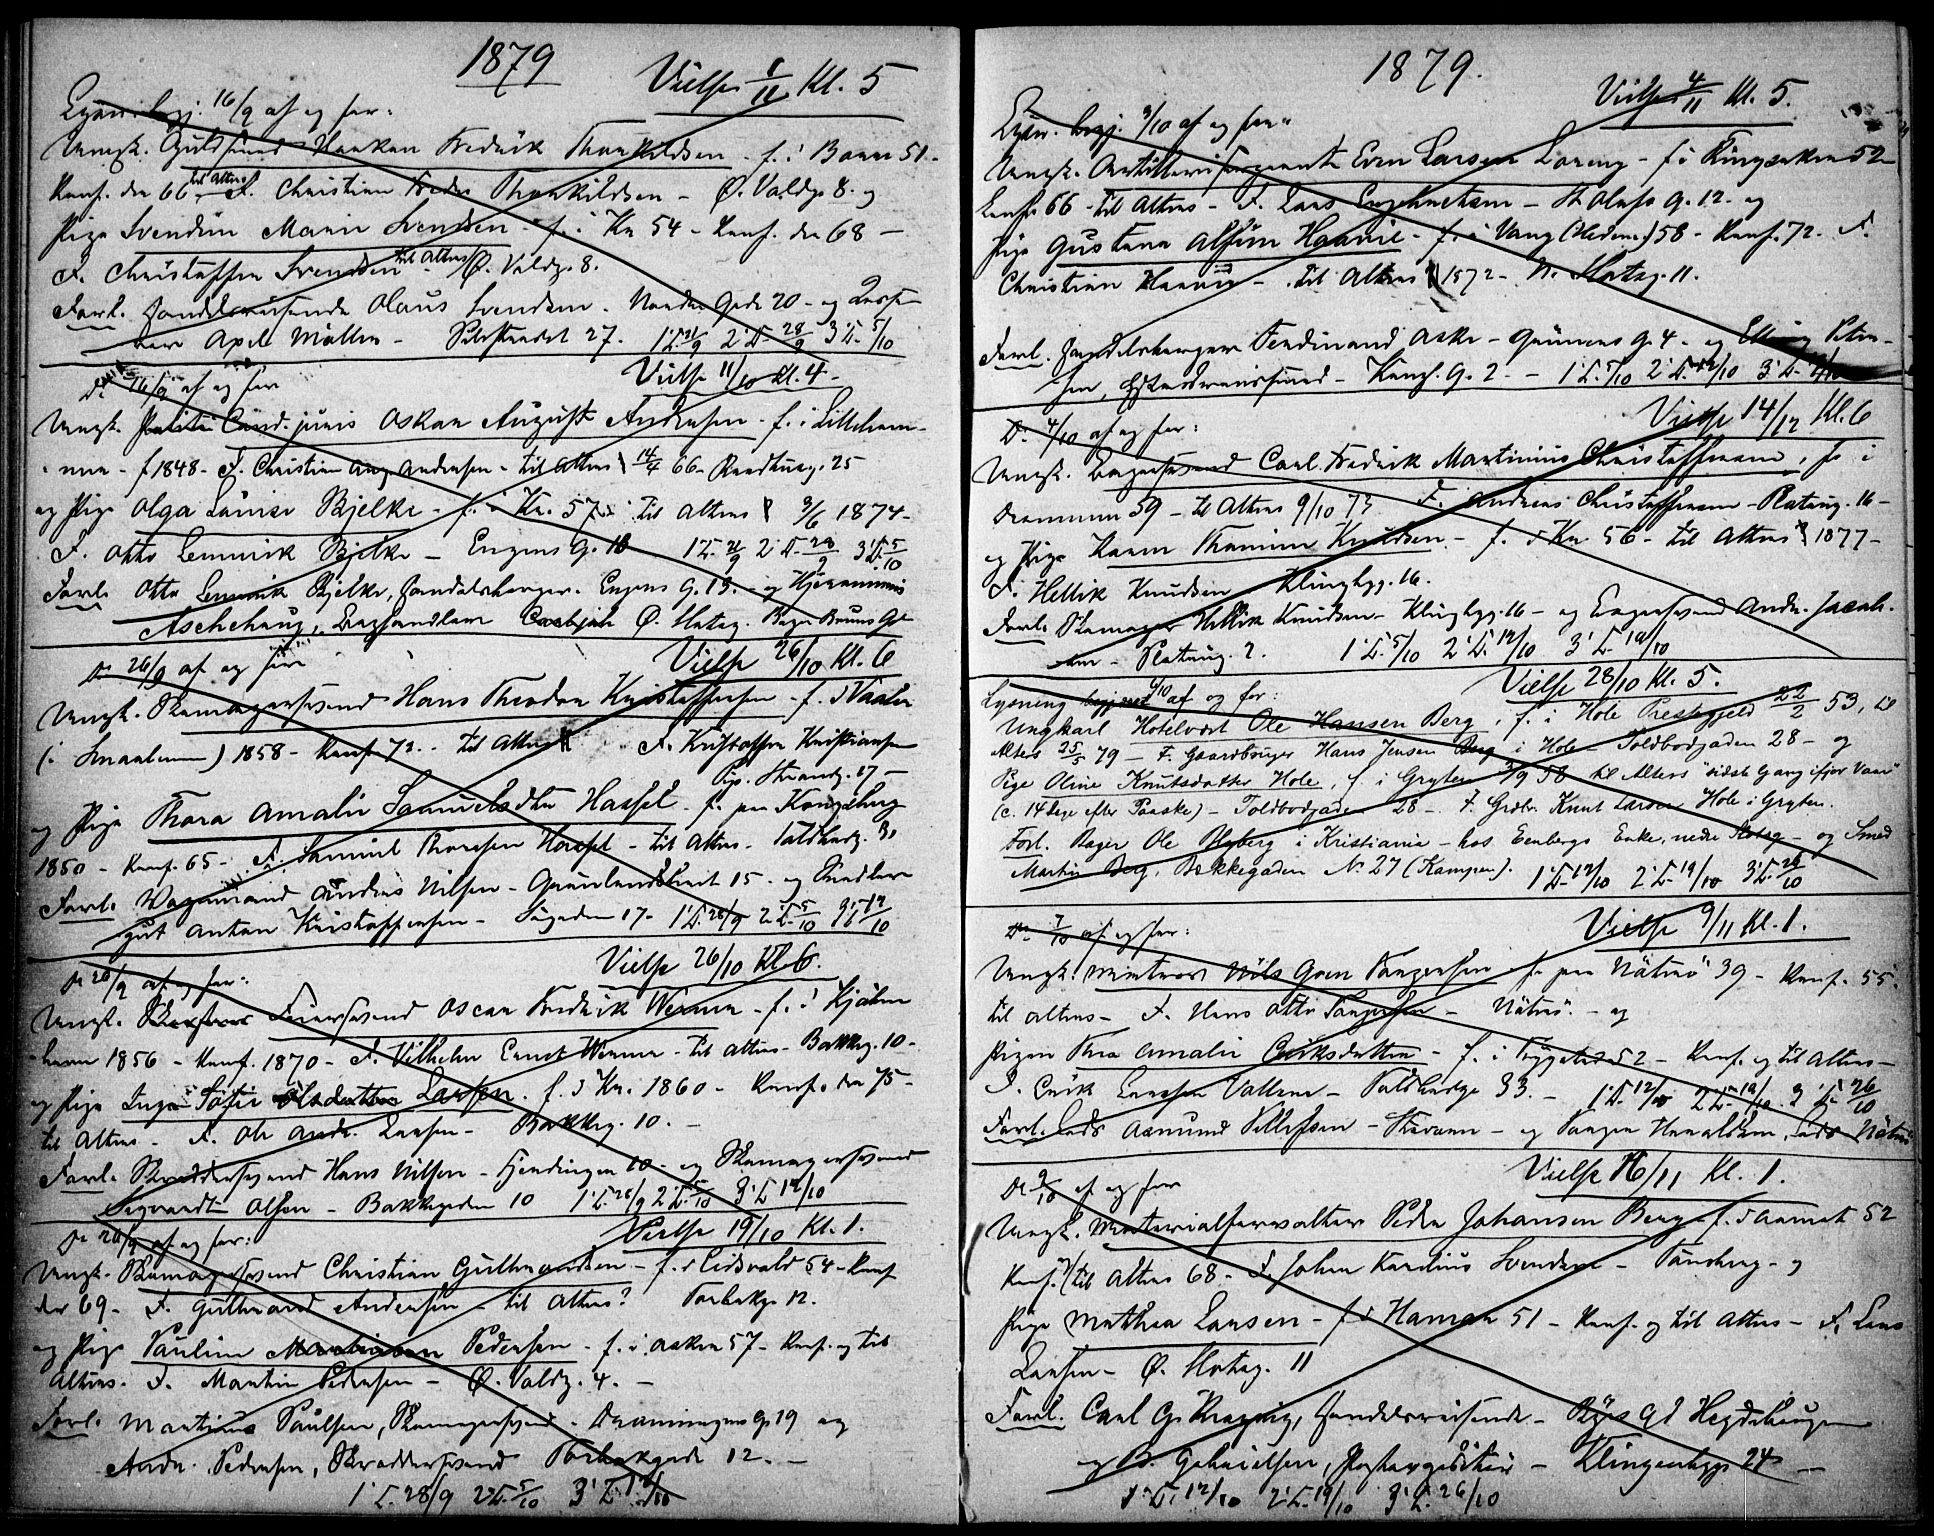 1879
Vielse 1/11 Kl. 5
begj. 16/9 af og for:
Ungk. Guldsmed Haakon Fredrik Thorkildsen - f. i 51 -
Konf. der 66 til Alters F. Christian Thorkildsen - Ø. Voldg. 8. og
Pige Svendine Marie Svendsen - f. i Kr. 54 - Konf. der 68 -
F. Christoffer Svendsen til Alters Ø. Voldg. 8.
Forl. Handelsreisende Olaus Svendsen - Nordre Gade 20 - og
Axel Møller - Pilestrædet 27. 1 L. 21/9 2 L. 28/9 3 L. 5/10
Vielse 11/10 Kl. 4 -
Do 16/9 af og for
Ungk. Cand. juris Oskar August Andersen - f. i Lilleham-
mer - f 1848 - F. Christian Aug. Andersen - til Alters 14/4 66 - Raadhusg. 25
og Pige Olga Louise Bjelke - f. i Kr. 57 - til Alters 3/6 1874 -
F. Otto Bjelke - Eugens G. 18 1 L. 21/9 2 L. 28/9 3 L. 5/10
Forl. Otto Bjelke, Handelsborger. Eugens G. 13 - og Hieronimus
Aschehoug, Boghandler Ø. Slotsg.
Vielse 26/10 Kl. 6
Do 26/9 af og for
Ungk. Skomagersvend Hans Theodor Kristoffersen - f. i Vaaler
(i Smaalenene) 1858 - Konf. 72 - til Alters F. Kristoffer Kristiansen
Pip. Strandg. 17 -
og Pige Thora Amalie Samuelsdtr Hassel - f. paa Kongsberg
1850 - Konf. 65 - F. Samuel Thoresen Hassel - til Alters - Toldbodg. 30
Forl. Vognmand Andreas Nilsen - Grønlandsleret 15 - og
gut Anton Kristoffersen - Søgaden 17 - 1 L. 28/9 2 L. 5/10 3 L. 12/10
Vielse 26/10 Kl. 6.
Do 26/9 af og for:
Ungk. Feiersvend Oscar Fredrik Werner - f. i Kjøben
havn 1856 - Konf. 1870 - F. Vilhelm Ernst Werner - til Alters - Bakkeg. 10 -
og Pige Inga Sofie Olsdatter Larsen. f. i Kr. 1860 - Konf. der 75 -
til Alters - F. Ole Andr. Larsen - Bakkeg. 10. -
Forl. Skræddersvend Hans Nilsen - Fjerdingen 10 - og Skomagersvend
Sigvardt Olsen - Bakkegaden 10 1 L. 28/9 2 L. 5/10 3 L. 12/10
Vielse 19/10 Kl. 1.
Do 26/9 af og for:
Ungk. Skomagersvend Christian Gulbrandsen - f. i Eidsvold 54 - Konf
der 69 - F. Gulbrand Andersen - til Alters? Torbakg. 12.
og Pige Pauline Martinsen Pedersen - f. i Asker 57 - Konf. og til
Alters. F. Martin Pedersen - Ø. Voldg. 4. -
Forl. Martinus Paulsen, Skomagersvend - Dronningens G. 19 og
Andr. Pedersen, Skræddersvend Torbakgade 12. -
1 L. 28/9 2 L. 5/10 3 L. 12/10
1879.
Vielse 4/11 Kl. 5.
Lysn. begj. 3/10 af og for
Ungk. Artillerisergeant Even Larsen Loreng - f. i Ringsaker 52
Konf. 66 - til Alters - F. Lars Engebretsen - St. Olafs G. 12 - og
Pige Gustava Alfine Haavie - f. i Vang (Hedem.) 58 - Konf. 72. F.
Christian Haavie - til Alters 1872 - N. Slotsg. 11.
Forl. Handelsborger Ferdinand Aske - Grønnegd. 4 - og Elling Peter-
sen, - Kongs. G. 2. - 1 L. 5/10 2 L. 12/10 3 L. 19/10
Vielse 14/12 Kl. 6
Do 4/10 af og for:
Ungk. Bagersvend Carl Fredrik Martinius Christoffersen, f. i
Drammen 59 - til Alters 9/10 73 F. Andreas Christoffersen - Platoug. 16 -
og Pige Karen Thomine Knudsen - f. i Kr. 56 - til Alters 1877 -
F. Hellik Knudsen Klingbgg. 16.
Forl. Skomager Hellik Knudsen - Klingbgg. 16 - og Bagersvend Andr. Jacob-
sen - Platoug. 2. 1 L. 5/10 2 L. 12/10 3 L. 19/10
Vielse 28/10 Kl. 5.
Lysning begjæret 6/10 af og for:
Ungkarl Hotelvært Ole Hansen Berg, f. i Hole Prestegjeld 22/2 53, til
Alters 25/5 79 - F. Gaardbruger Hans Jensen Berg i Hole - Toldbodgaden 28 - og
Pige Oline Knutsdatter Hole, f. i Gryten 3/9 58 til Alters "sidste Gang ifjor Vaar"
(c. 14 Dage efter Paaske) - Toldbodgaden 28 - F. Grdbr. Knut Larsen Hole i Gryten.
Forl. Bager Ole Myberg i Kristiania - hos Eenbergs Enke, nedre Slotsg - og Smed
Martin Berg, Bakkegaden No 27 (Kampen). 1 L. 12/10 2 L. 19/10 3 L. 26/10
Vielse 9/11 Kl. 1.
Do 7/10 af og for:
Ungk. Nils Tangersen f. paa Nøterø 39 - Konf. 55.
til Alters - F. Hans Otto Tangersen - Nøterø. - og
Pigen Thea Amalie Eriksdatter - f. i Trygstad 52 - Konf. og til Alters -
F. Erik Larsen - Toldbodg. 33. - 1 L. 12/10 2 L. 19/10 3 L. 26/10
Forl. Lods Asmund Tellefsen - - og Tanger Haraldsen, Lods Nøterø
Vielse 16/11 Kl. 1.
Do 9/10 af og for
Ungk. Materialforvalter Peder Johansen Berg - f. i Aamot 52
Konf. til Alters 68 - F. Johan Karelius Svendsen - Tønsberg - og
Pige Mathea Larsen - f. i Hamar 51 - Konf. og til Alters - F. Lars
Larsen - Ø. Slotsg. 11
Forl. Carl G. Kragvig, Handelsreisende - Gd Hegdehaugen
og B. Gabrielsen, Postexpeditør - Klingenbgg. 24 -
1 L. 12/10 2 L. 19/10 3 L. 26/10